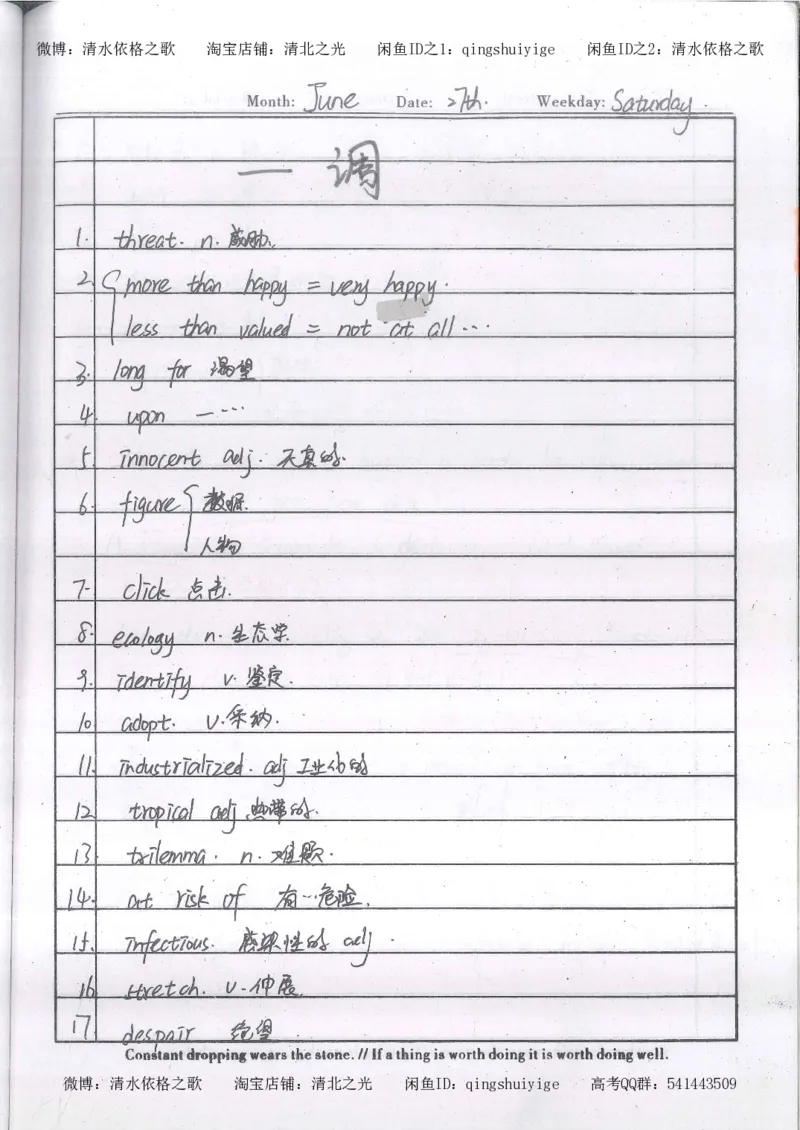 微博：清水依格之歌 淘宝店铺：清北之光 闲鱼ID之1：qingshuiyige 闲鱼ID之2：清水依格之歌
Month: June Date: 27th. Weekday: Saturday.
一调
1. threat. n. 威胁.
2. more than happy = very happy.
less than valued = not at all ...
3. long for 渴望
4. upon 一...
5. innocent adj. 天真的.
6. figure 数据.
人物
7. click 点击.
8. ecology n. 生态学.
9. identify v. 鉴定.
10. adopt. v. 采纳.
11. industrialized. adj 工业化的
12 tropical adj 热带的.
13. trilemma. n. 难题.
14. at risk of 有...危险.
15. infectious. 感染性的 adj.
16 stretch. v. 伸展.
17 despair 绝望
Constant dropping wears the stone. // If a thing is worth doing it is worth doing well.
微博：清水依格之歌 淘宝店铺：清北之光 闲鱼ID：qingshuiyige 高考QQ群：541443509